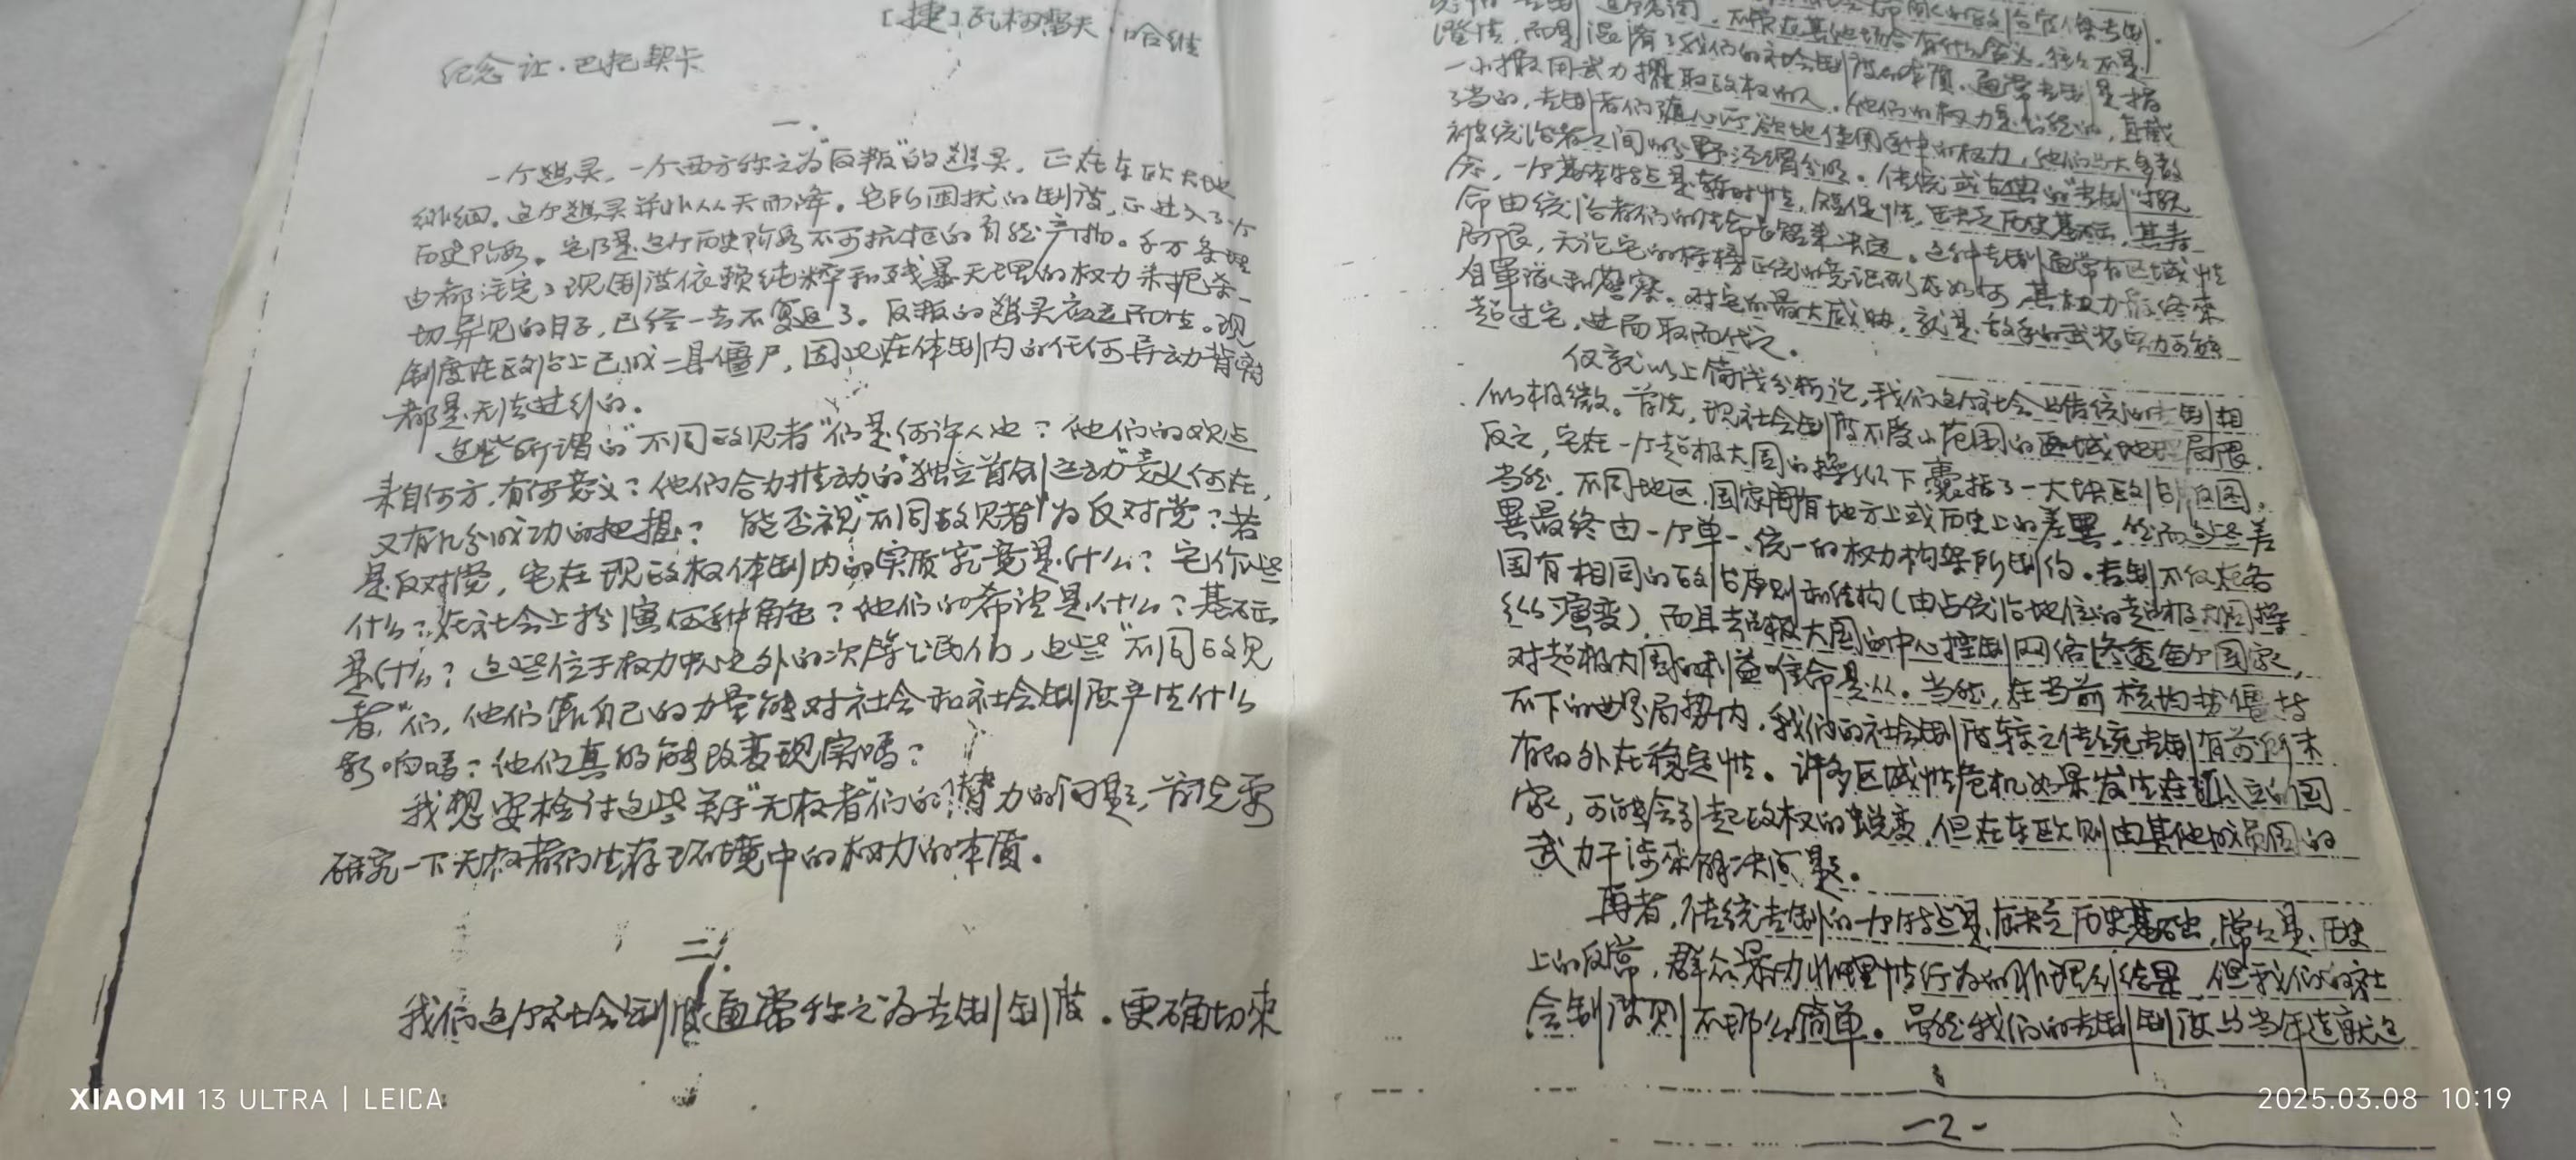 [捷]瓦权雷夫·哈维
纪念让·巴托契卡
一.
一个幽灵,一个西方称之为“反叛”的幽灵,正在东欧大地
徘徊。这个幽灵并非从天而降。它所困扰的制度,正进入了个
历史阶段。它乃是这个历史阶段不可抗拒的自然产物。千万条理
由都注定了现制度依赖纯粹和残暴无理的权力来扼杀一
切异见的日子,已经一去不复返了。反叛的幽灵应运而生。现
制度在政治上已成一具僵尸,因此在体制内的任何异动背离
都是无法进行的。
这些所谓的“不同政见者”们是何许人也?他们的观点
来自何方,有何意义?他们合力推动的“独立首创运动”意义何在,
又有几分成功的把握?能否视“不同政见者”为反对党?若
是反对党,它在现政权体制内的实质究竟是什么?它作些
什么?在社会上扮演何种角色?他们的希望是什么?基础
是什么?这些位于权力中心之外的次等公民们,这些“不同政见
者”们,他们靠自己的力量能对社会和社会制度产生什么
影响吗?他们真的能改变现实吗?
我想要检讨这些关于“无权者”们的潜力的问题,首先要
研究一下无权者们生存环境中的权力的本质。
二.
我们这个社会制度通常称之为专制制度。更确切来
澄清,而是混淆了我们的社会制度的本质。通常专制是指
一小撮用武力攫取政权的人。他们的权力是公然的,直截
了当的,专制者们随心所欲地使用手中的权力,他们与大多数
被统治者之间的分野泾渭分明。传统或古典的“专制”
一个基本特点是暂时性,短促性,且缺乏历史基础,其寿
命由统治者们的生命长短来决定。这种专制通常有区域性
局限,无论它的标榜正统的意识形态如何,其权力最终来
自军队和警察。对它的最大威胁,就是敌手的武装实力可能
超过它,进而取而代之。
仅就以上简浅分析论,我们这个社会与传统的专制相
似极微。首先,现社会制度不受小范围的区域地理局限,
反之,它在一个超极大国的操纵下囊括了一大块政治版图。
当然,不同地区,国家间有地方上或历史上的差异,然而这些差
异最终由一个单一、统一的权力构架所制约。专制不仅在各
国有相同的政治原则和结构(由占统治地位的超极大国操
纵演变),而且超极大国的中心控制网络渗透每个国家,
对超极大国的利益唯命是从。当然,在当前核均势僵持
不下的世界局势内,我们的社会制度较之传统专制有前所未
有的外在稳定性。许多区域性危机如果发生在孤立的国
家,可能会引起政权的蜕变,但在东欧则由其他成员国的
武力干涉来解决问题。
再者,传统专制的一个特点是在缺乏历史基础,常常是历史
上的反常,群众暴动非理性行为的非理性结果,但我们的社
会制度则不那么简单。虽然我们的专制制度与当年造就这
-2-
XIAOMI 13 ULTRA | LEICA
2025.03.08 10:19